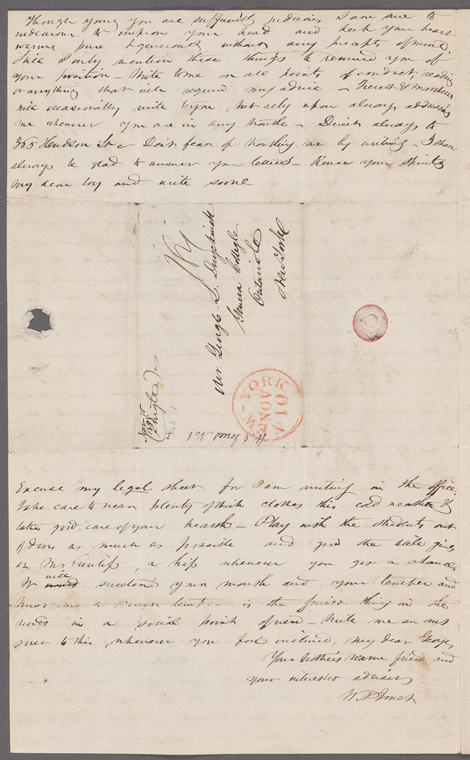 Though young you are sufficiently judicious I am sure to
endeavour to improve your head and keep your heart
warm pure & generous without any precepts of mine.
Still I only mention these things to remind you of
your position - Write to me on all points of conduct reading
or anything that will require my advice -
will occasionally write to you, but rely upon always addressing
me whenever you are in any trouble - Direct always to
365 Hudson St & Dont fear of troubling me by writing - I shall
always be glad to answer your letters - Rouse your spirits
my dear boy and write soon
NY
Mr. George L. Duyckinck
Geneva College
Ontario Co
New York
NEW-YORK
NOV
10
Nov. 10
Single
Excuse my legal sheet for I am writing in the office.
Take care to wear plenty of thick clothes this cold weather &
take good care of your health - Play with the students out
of doors as much as possible and
a kiss whenever you get a chance
your mouth and your
is the thing in the
world in a social point of view - Write me an ans
wer to this, whenever you feel inclined, my dear George,
Your brother's warm friend and
your interested adviser
W. A. Jones